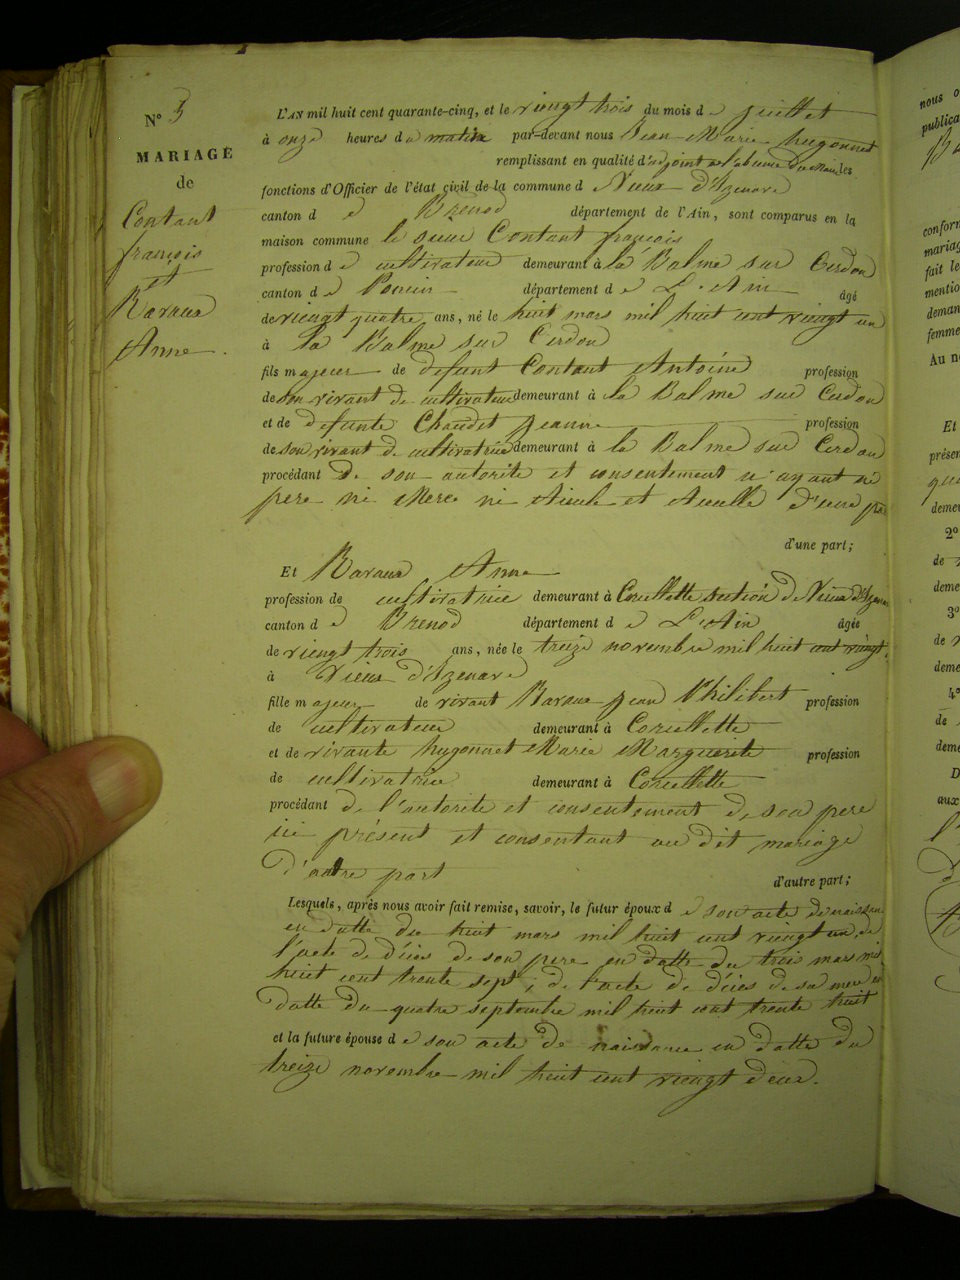 N° 3
MARIAGE
de
Contant
françois
et
Ravaux
Anne
L'AN mil huit cent quarante-cinq, et le viengt trois du mois de juillet
à onze heures du matin par-devant nous Jean Marie hugonnet
remplissant en qualité d'adjoint a l'absence du Maire les
fonctions d'Officier de l'état civil de la commune d Vieux d'Izenave
canton d e Brenod département de l'Ain, sont comparus en la
maison commune le sieur Contant françois
profession d e cultivateur demeurant à la Balme sur Cerdon
canton d e Poncin département d e L'Ain âgé
de viengt quatre ans, né le huit mars mil huit cent viengt un
à la Balme sur Cerdon
fils majeur de defunt Contant Antoine profession
de son vivant de cultivateur demeurant à la Balme sur Cerdon
et de defunte Chaudet jeanne profession
de son vivant de cultivatrice demeurant à la Balme sur Cerdon
procédant De son autorite et consentement n'ayant ni
pere ni Mere ni Aieule et Aieulle d'une par
d'une part;
Et Ravaux Anne
profession de cultivatrice demeurant à Corcellette section de Vieux d'Izenave
canton d e Brenod département d e L'Ain âgée
de viengt trois ans, née le treize novembre mil huit cent viengt
à Vieux d'Izenave
fille majeur de vivant Ravaux jean Philibert profession
de cultivateur demeurant à Corcellette
et de vivante hugonnet Marie Marguerite profession
de cultivatrice demeurant à Corcellette
procédant de l'autorite et consentement de son pere
ici présent et consentant au dit mariage
d'autre part
d'autre part;
Lesquels, après nous avoir fait remise, savoir, le futur époux d e son acte de naissance
en datte du huit mars mil huit cent viengt un, de
l'acte de décès de son pere en datte du trois mars mil
huit cent trente sept, de l'acte de décès de sa mere en
datte du quatre septembre mil huit cent trente huit
et la future épouse d e son acte de naissance en datte du
treize novembre mil huit cent viengt deux.
nous o
publica
conform
mariage
fait le
mentio
deman
femme
Au n
Et
présen
demeu
2°
de
deme
3°
de
deme
4°
de
deme
D
aux